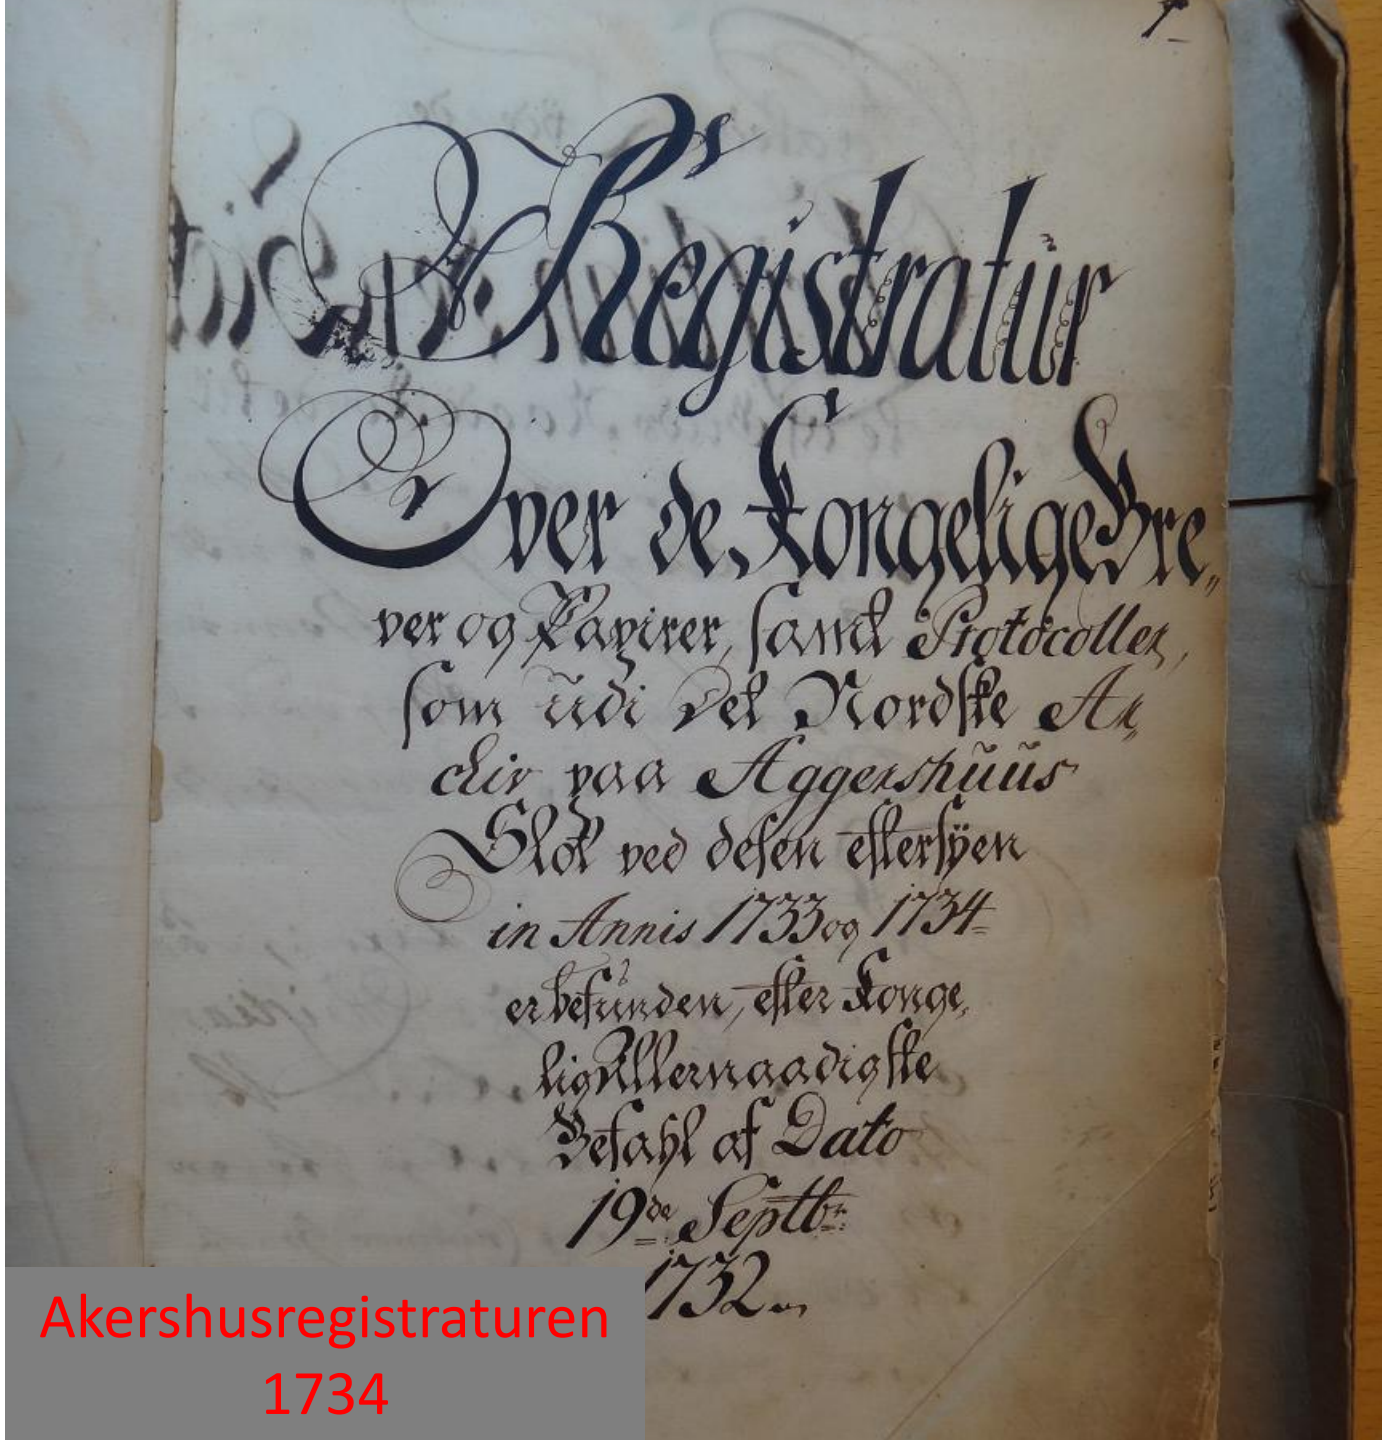 1
Registratur
Over de Kongelige Bre„
ver og Papirer, samt Protocoller,
som udi det Nordske Ar„
chiv paa Aggershuus
Slot ved desen eftersÿen
in Annis 1733 og 1734
er befunden, efter Konge„
lig Allernaadigste
Befahl af Dato
19de Septbr:
1732
Akershusregistraturen
1734